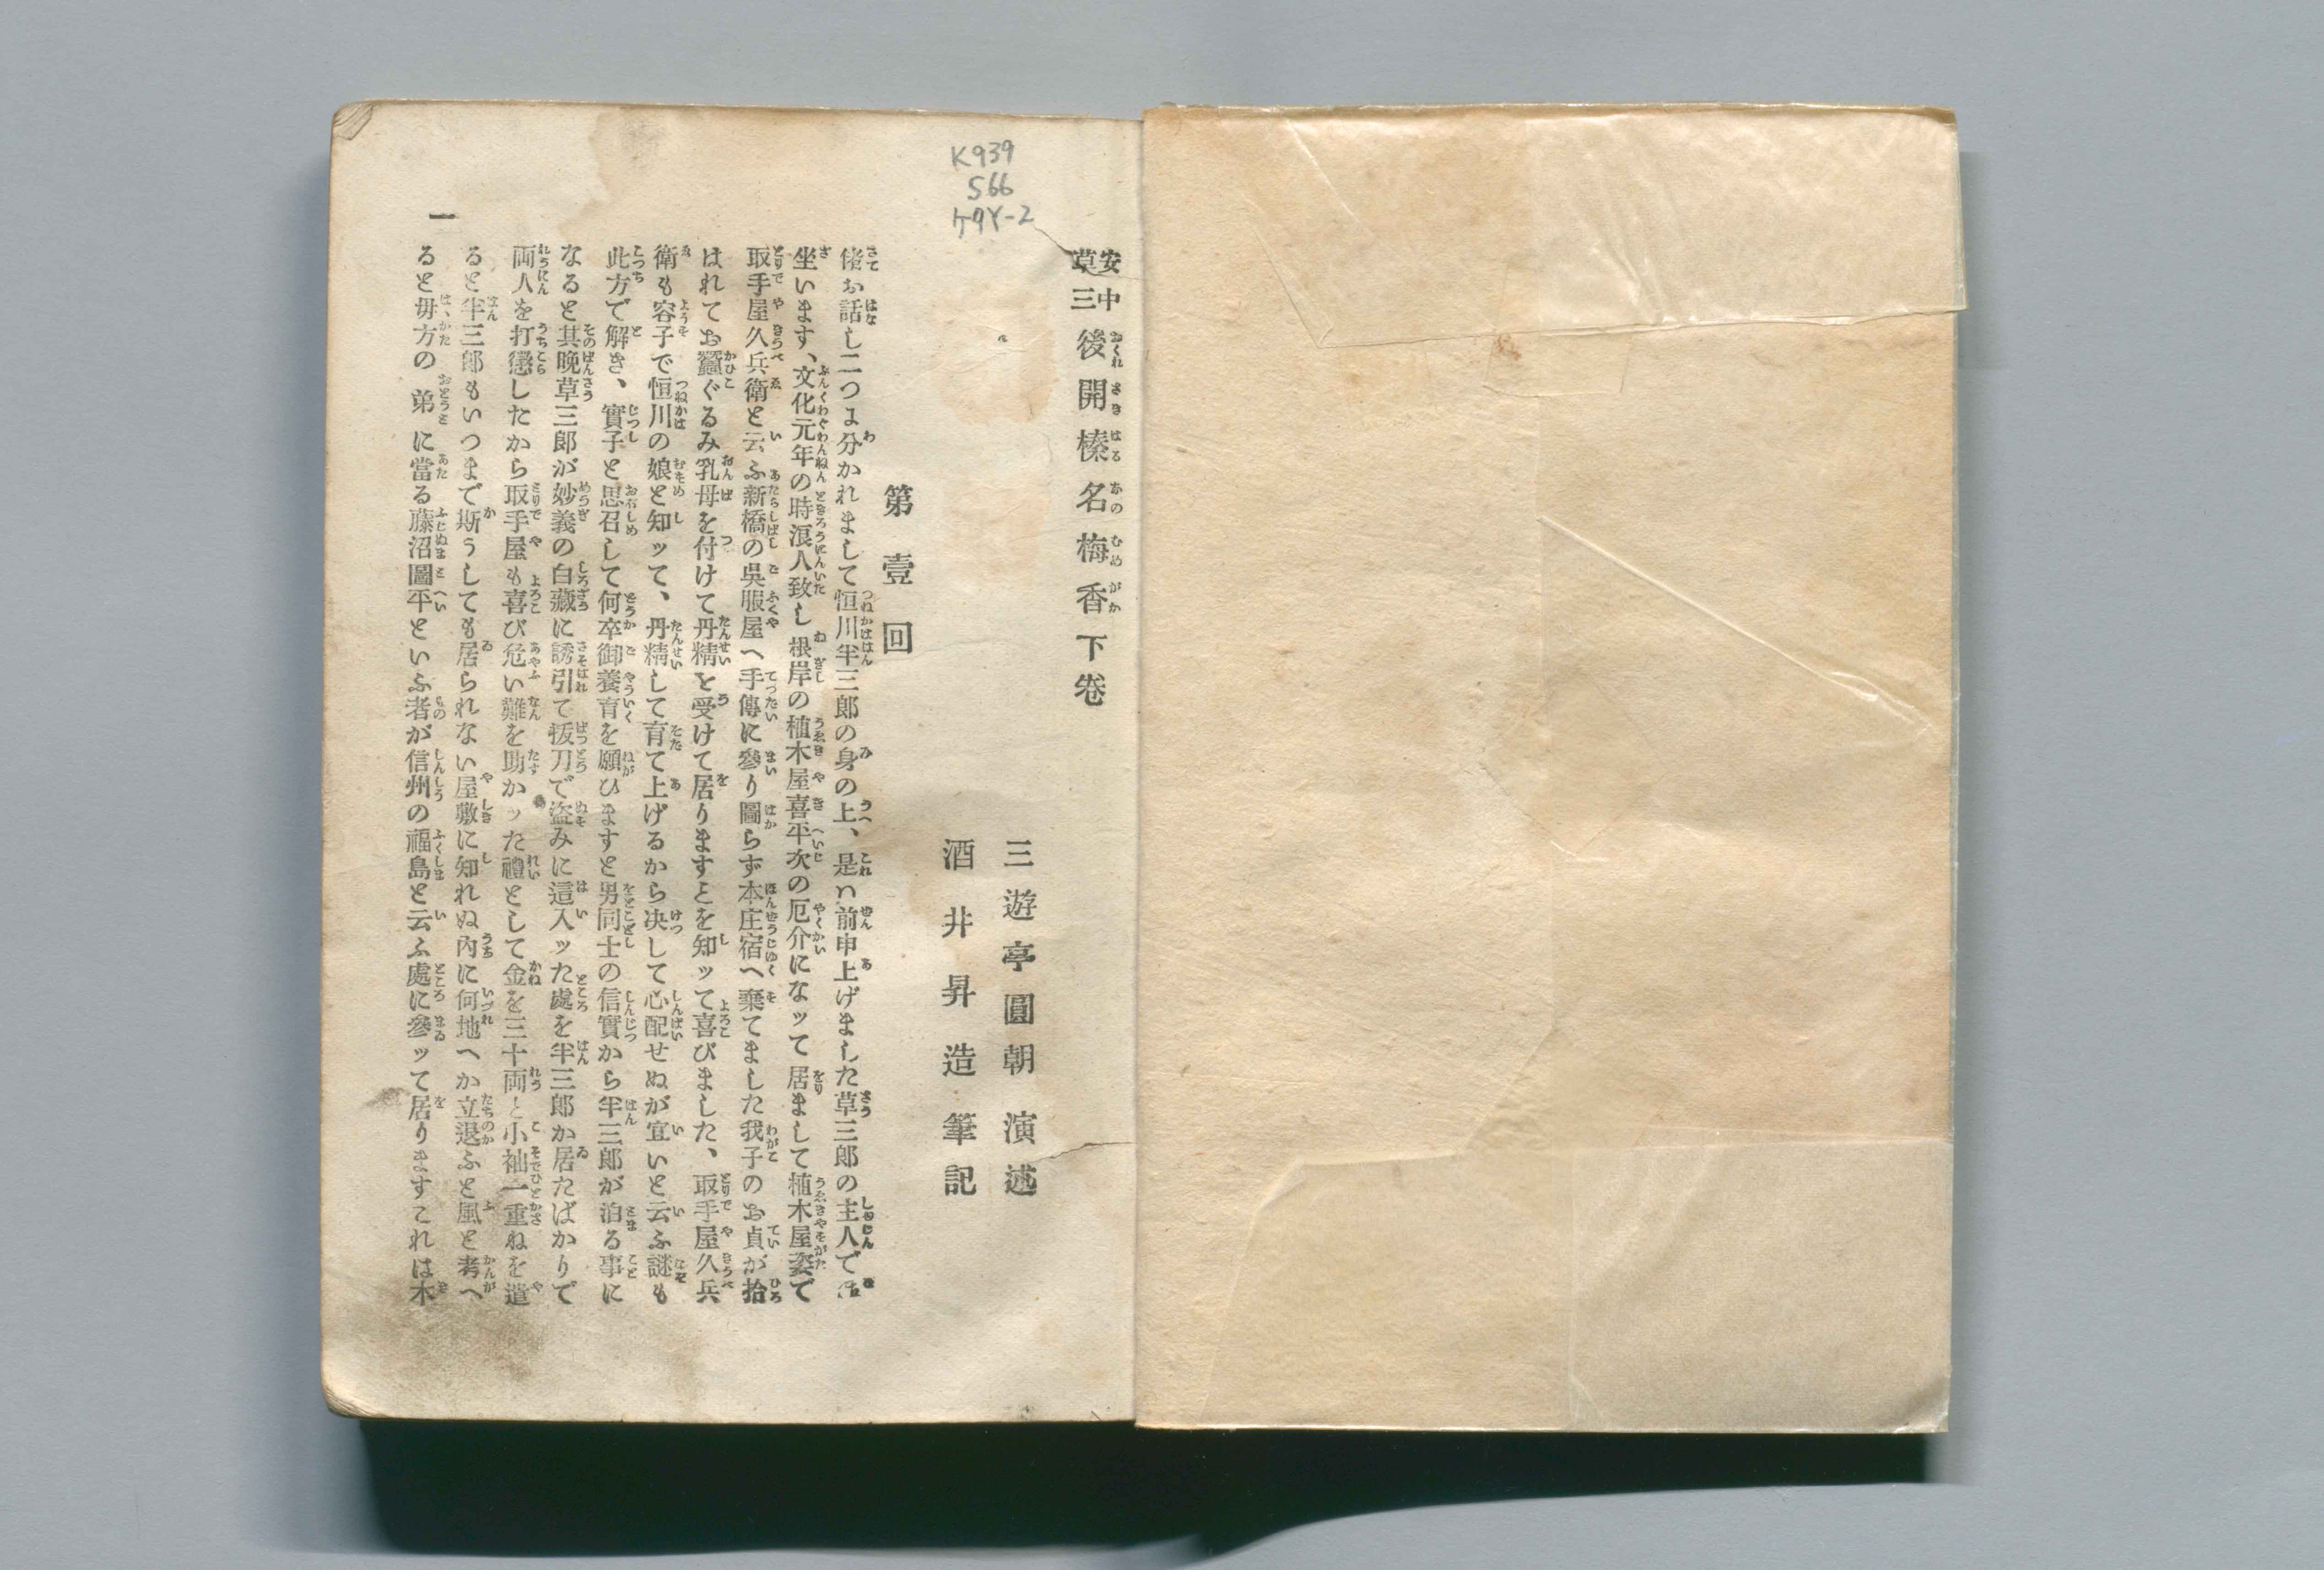 K939
S66
ｹ9Y-2
安中草三 後開榛名梅香 下卷
三遊亭圓朝 演述
酒井昇造 筆記
第壹回
偖お話し二つに分かれまして恒川半三郎の身の上、是ハ前申上げました草三郎の主人で御
坐います、文化元年の時浪人致し根岸の植木屋喜平次の厄介になッて居まして植木屋姿で
取手屋久兵衛と云ふ新橋の呉服屋へ手傳に參り圖らず本庄宿へ棄てました我子のお貞が拾
はれてお蠶ぐるみ乳母を付けて丹精を受けて居りますことを知ッて喜びました、取手屋久兵
衛も容子で恒川の娘と知ッて、丹精して育て上げるから决して心配せぬが宜いと云ふ謎も
此方で解き、實子と思召して何卒御養育を願ひますと男同士の信實から半三郎が泊る事に
なると其晩草三郎が妙義の白藏に誘引て抜刀で盗みに這入ッた處を半三郎か居たばかりで
両人を打懲したから取手屋も喜び危い難を助かッた禮として金を三十両と小袖一重ねを遣
ると半三郎もいつまで斯うしても居られない屋敷に知れぬ內に何地へか立退ふと風と考へ
ると毋方の弟に當る藤沼圖平といふ者が信州の福島と云ふ處に參ッて居りますこれは木
一